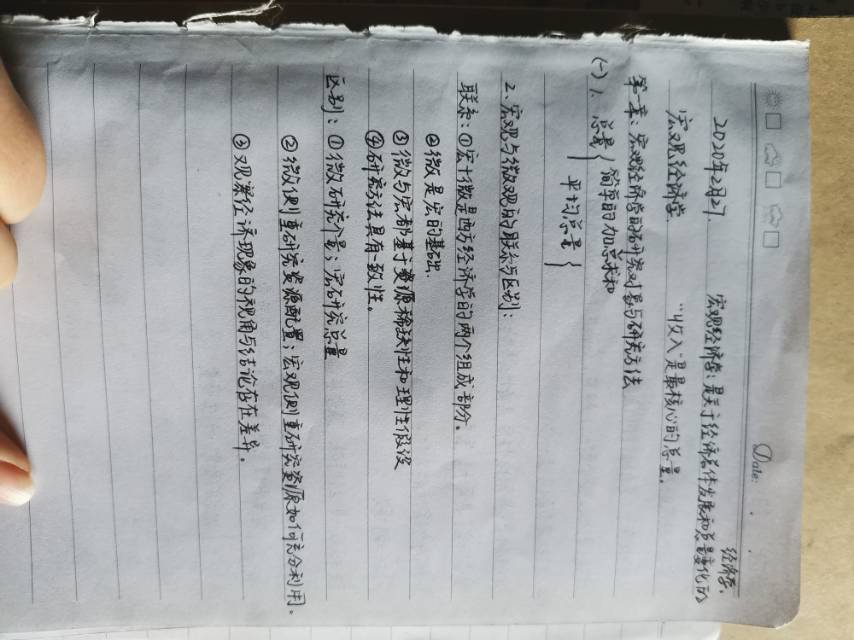 Date:
2020年2月27. 宏观经济学:是关于经济总体发展和总量变化的
经济学.
宏观经济学 "收入"是最核心的总量.
第一章:宏观经济学的研究对象与研究方法
(一) 1、总量{ 简单的加总求和
平均总量{
2、宏观与微观的联系与区别:
联系:①宏+微是西方经济学的两个组成部分。
②微是宏的基础.
③微与宏都基于资源稀缺性和理性假设
④研究方法具有一致性。
区别:①微研究个量;宏研究总量
②微侧重研究资源配置;宏观侧重研究资源如何充分利用。
③观察经济现象的视角与结论存在差异。